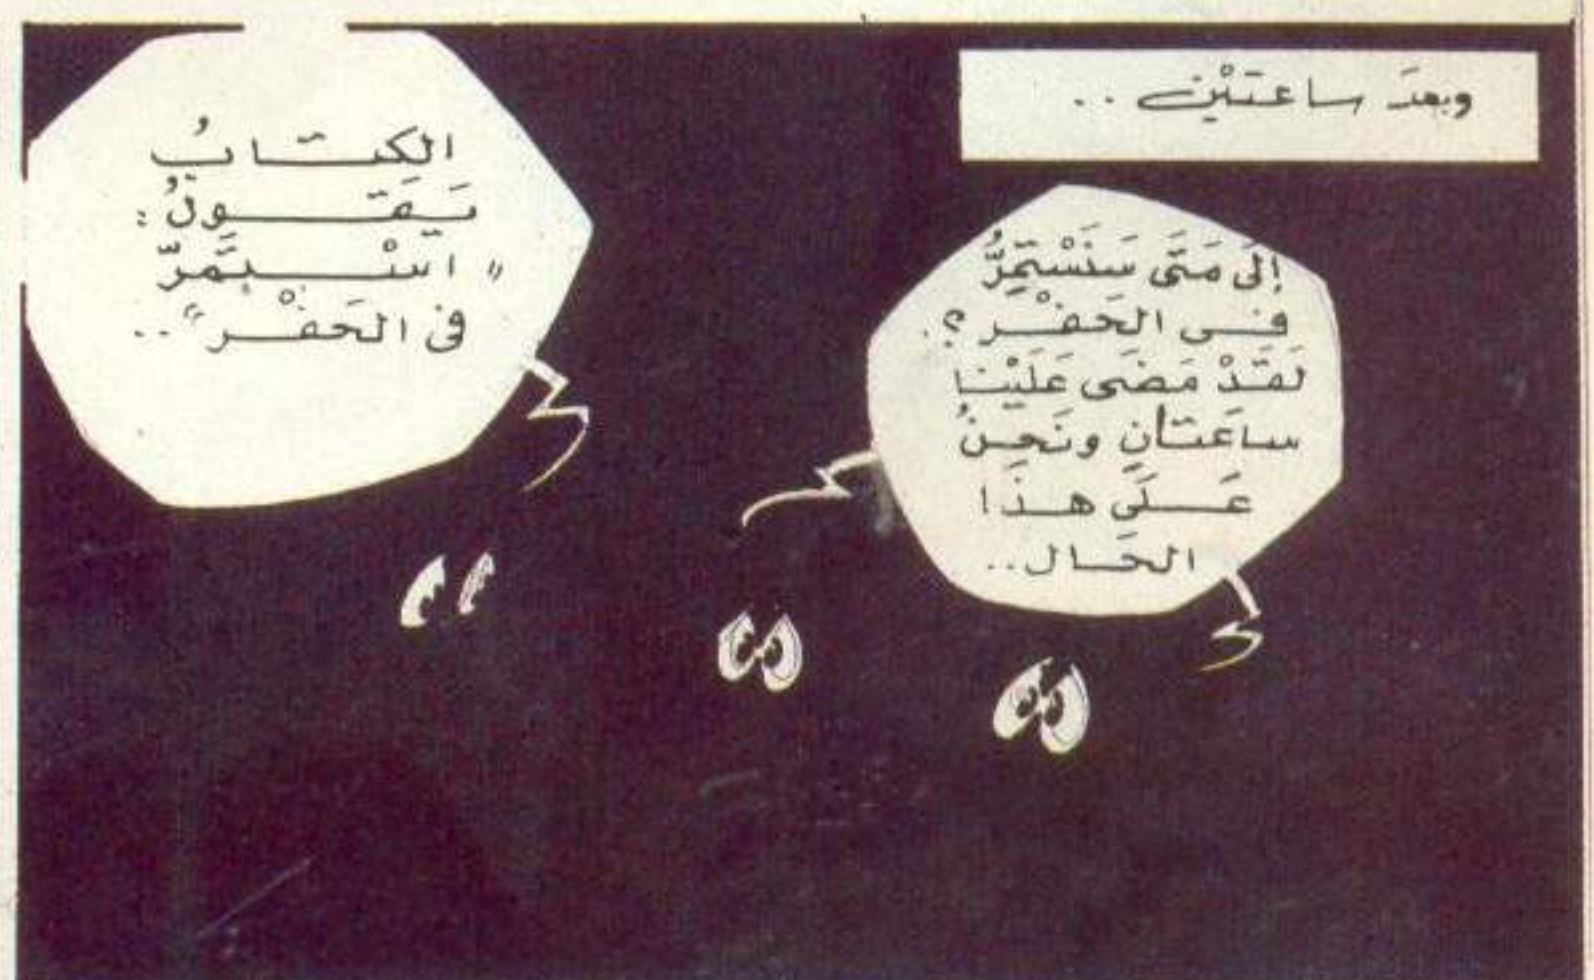 وبعدَ ساعتَيْن ..
إلَى مَتَى سَنَسْتَمِرُّ
فى الحَفْر ؟.
لَقَدْ مَضَى عَلَيْنا
ساعَتانِ ونَحنُ
عَلَى هذَا
الحَال..
الكِتابُ
يَقولُ :
" اسْتَمرّ
فى الحَفْر "..